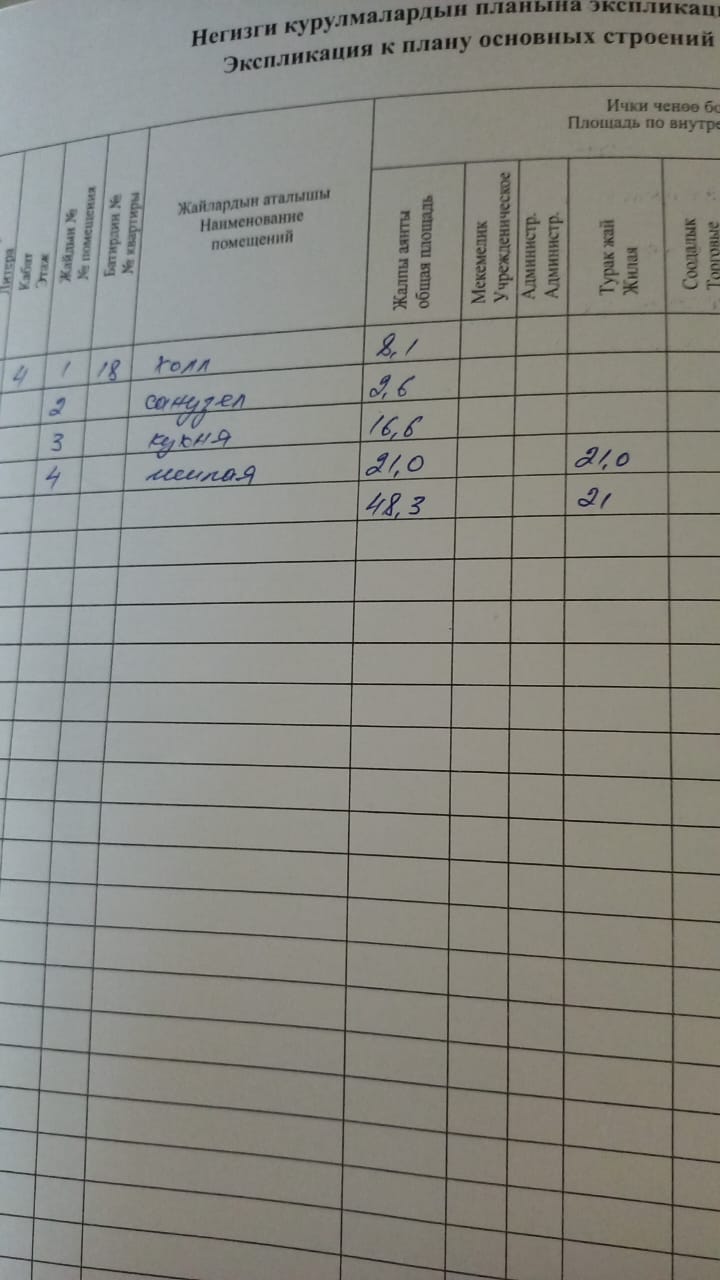 Негизги курулмалардын планына
Экспликация к плану основных строений
Ички ченөө
Площадь по
Литера
Кабат
Этаж
Жайдын №
№ помещения
Батирдин №
№ квартиры
Жайлардын аталышы
Наименование
помещений
Жалпы аянты
общая площадь
Мекемелик
Учрежденическое
Администр.
Администр.
Турак жай
Жилая
Соодалык
Торговые
4 1 18 холл 8,1
2 санузел 2,6
3 кухня 16,6
4 жилая 21,0 21,0
48,3 21